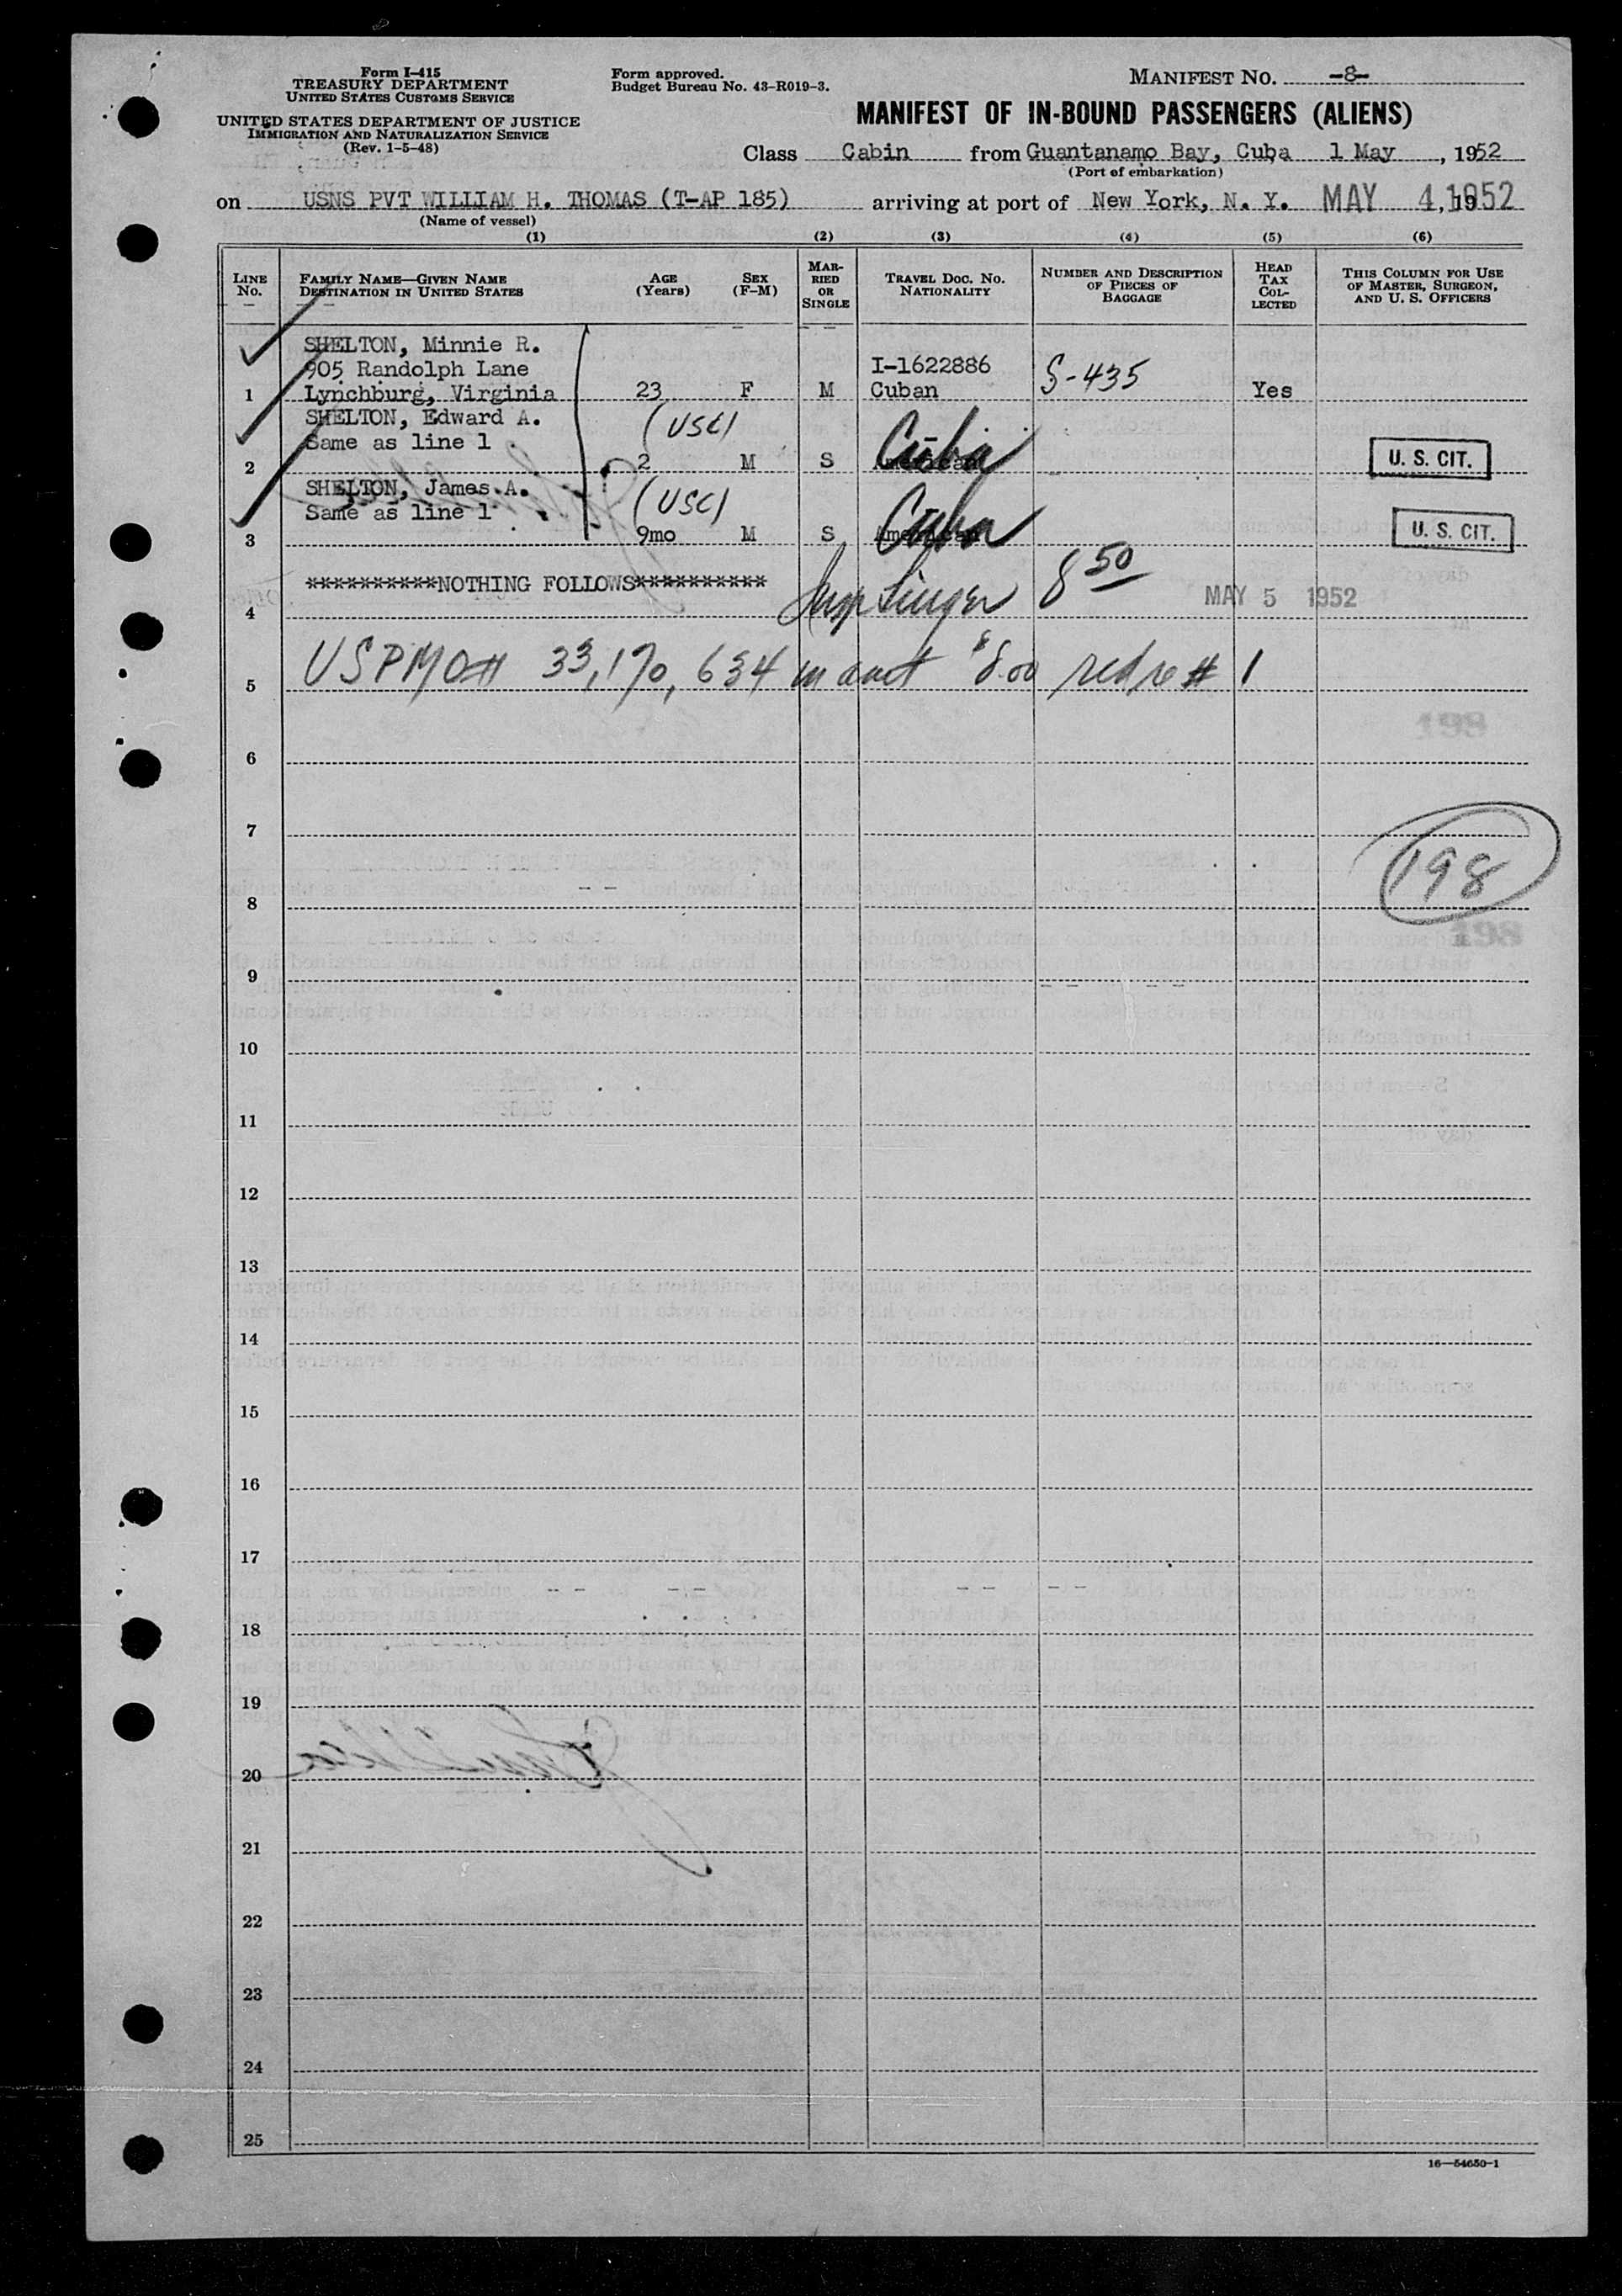 Form I-415
TREASURY DEPARTMENT
UNITED STATES CUSTOMS SERVICE
UNITED STATES DEPARTMENT OF JUSTICE
IMMIGRATION AND NATURALIZATION SERVICE
(Rev. 1-5-48)
Form approved.
Budget Bureau No. 43-R019-3.
MANIFEST NO. -8-
MANIFEST OF IN-BOUND PASSENGERS (ALIENS)
Class Cabin from Guantanamo Bay, Cuba 1 May, 1952
(Port of embarkation)
on USNS PVT WILLIAM H. THOMAS (T-AP 185) arriving at port of New York, N. Y. MAY 4, 1952
(Name of vessel)
(1) (2) (3) (4) (5) (6)
LINE No. FAMILY NAME—GIVEN NAME DESTINATION IN UNITED STATES AGE (Years) SEX (F-M) MARRIED OR SINGLE TRAVEL DOC. NO. NATIONALITY NUMBER AND DESCRIPTION OF PIECES OF BAGGAGE HEAD TAX COLLECTED THIS COLUMN FOR USE OF MASTER, SURGEON, AND U. S. OFFICERS
SHELTON, Minnie R.
905 Randolph Lane I-1622886 S-435
1 Lynchburg, Virginia 23 F M Cuban Yes
SHELTON, Edward A. (USC)
Same as line 1 Cuba
2 2 M S American U. S. CIT.
SHELTON, James A. (USC)
Same as line 1 Cuba
3 9mo M S American U. S. CIT.
**********NOTHING FOLLOWS********** 8 50 MAY 5 1952
4
5 USPMO# 33,170,634 in amt $8.00 # 1
6
7
198
8
198
9
10
11
12
13
14
15
16
17
18
19
20
21
22
23
24
25
16—54650-1